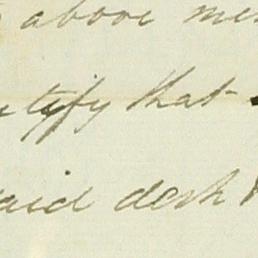 above men
tify that
said desk